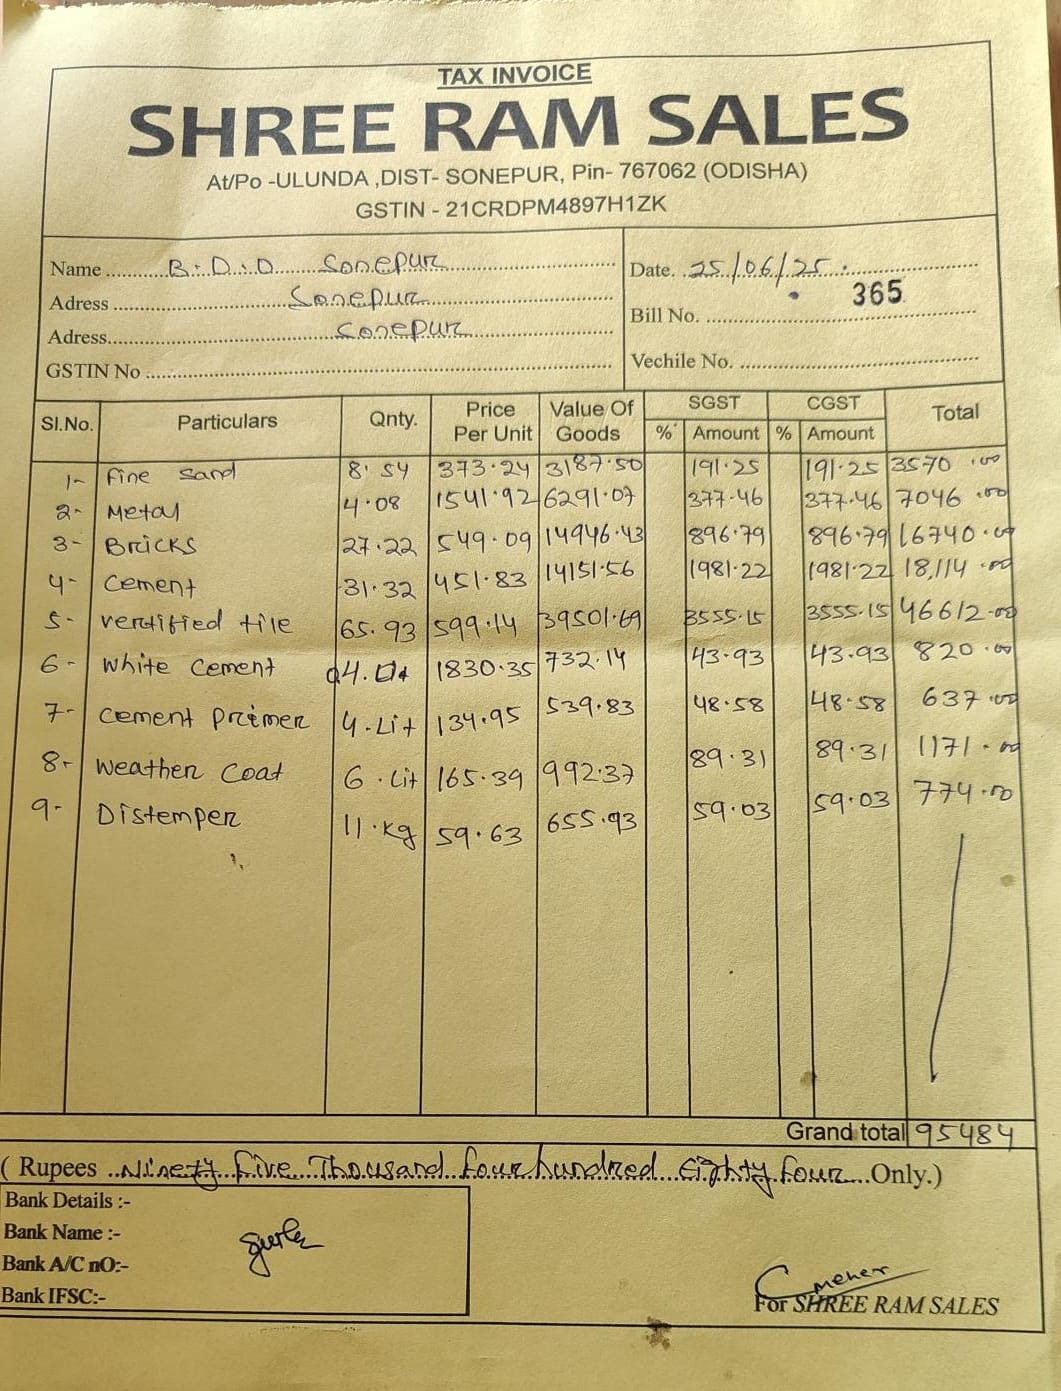 TAX INVOICE
SHREE RAM SALES
At/Po -ULUNDA ,DIST- SONEPUR, Pin- 767062 (ODISHA)
GSTIN - 21CRDPM4897H1ZK
Name B.D.O Sonepur
Adress Sonepur
Adress Sonepur
GSTIN No
Date. 25/06/25.
365
Bill No.
Vechile No.
Sl.No. Particulars Qnty. Price Per Unit Value Of Goods SGST % Amount CGST % Amount Total
1- fine sand 8.54 373.24 3187.50 191.25 191.25 3570.00
2- Metal 4.08 1541.92 6291.07 377.46 377.46 7046.00
3- Bricks 27.22 549.09 14946.43 896.79 896.79 16740.00
4- Cement 31.32 451.83 14151.56 1981.22 1981.22 18,114.00
5- vertified tile 65.93 599.14 39501.69 3555.15 3555.15 46612.00
6- White Cement 1830.35 732.14 43.93 43.93 820.00
7- Cement Primer 4.Lit 134.95 539.83 48.58 48.58 637.00
8- Weather Coat 6.Lit 165.39 992.37 89.31 89.31 1171.00
9- Distemper 11.Kg 59.63 655.93 59.03 59.03 774.00
Grand total 95484
( Rupees Ninety five Thousand four hundred Eighty four Only.)
Bank Details :-
Bank Name :-
Bank A/C nO:-
Bank IFSC:-
Meher
For SHREE RAM SALES